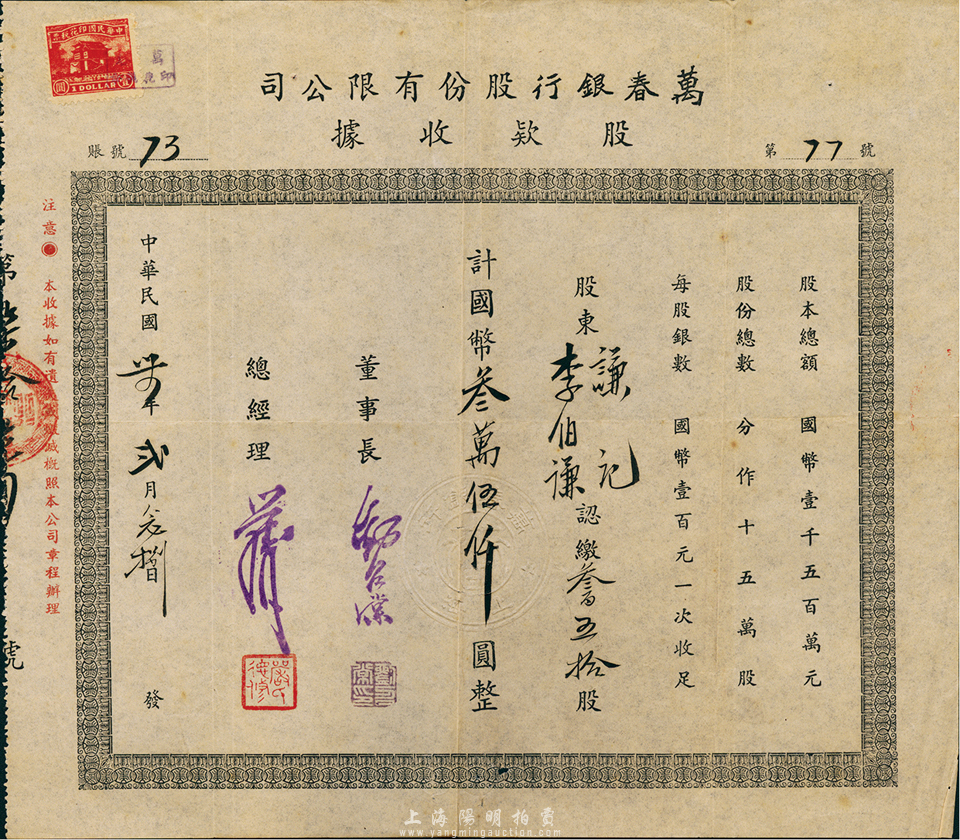 中華民國印花稅票
1 DOLLAR
圓
萬春銀行股份有限公司
股欵收據
第 77 號
賬號 73
股本總額 國幣壹千五百萬元
股份總數 分作十五萬股
每股銀數 國幣壹百元一次收足
股東 謙記
李伯謙 認繳叁百五拾股
計國幣叁萬伍仟圓整
董事長
總經理
中華民國 年 弍月 發
注意 本收據如有遺 概照本公司章程辦理
第 號
上海陽明拍賣
www.yangmingauction.com